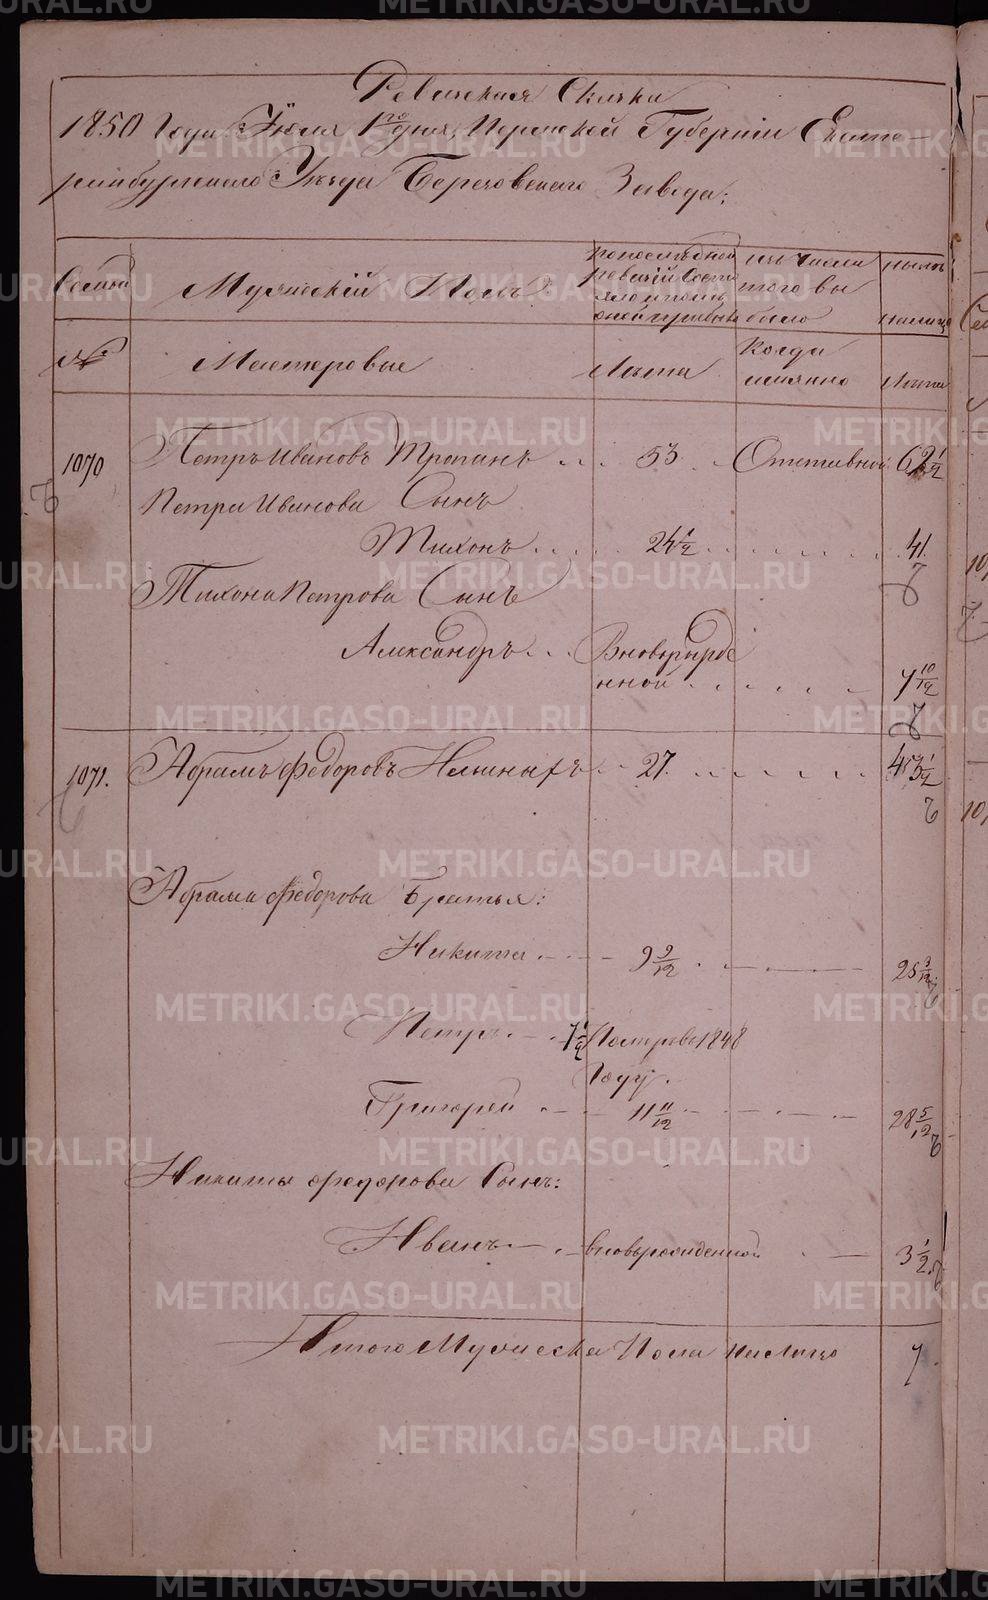 Ревижская Скаска
1850 Года Июля 1го дня, Пермской Губернiи Екате-
ринбургскаго Уѣзда Березовскаго Завода;
Семьи
Мужескiй Полъ.
по последней
ревизiй состо
яло и послѣ
оной прибыло
изъ числа
того вы
было
нынѣ
налицо
№
Мастеровые
Лѣта
Когда
имянно
Лѣта
1070
Петръ Ивановъ
53
Отставной
Петра Иванова Сынъ
Тихонъ
24 1/2
41
Тихона Петрова Сынъ
Александръ
Вноворожде
нной
7 10/12
1071.
Абрамъ Федоровъ
27
Абрама Федорова Братья:
Никита
9 9/12
25
Петръ
7 1/2
Померъ въ 1848
Году.
Григорей
11 11/12
28 5/12
Никиты Федорова Сынъ:
Иванъ
вноворожденной
3 1/2
Итого Мужеска Пола На Лицо
7
METRIKI.GASO-URAL.RU